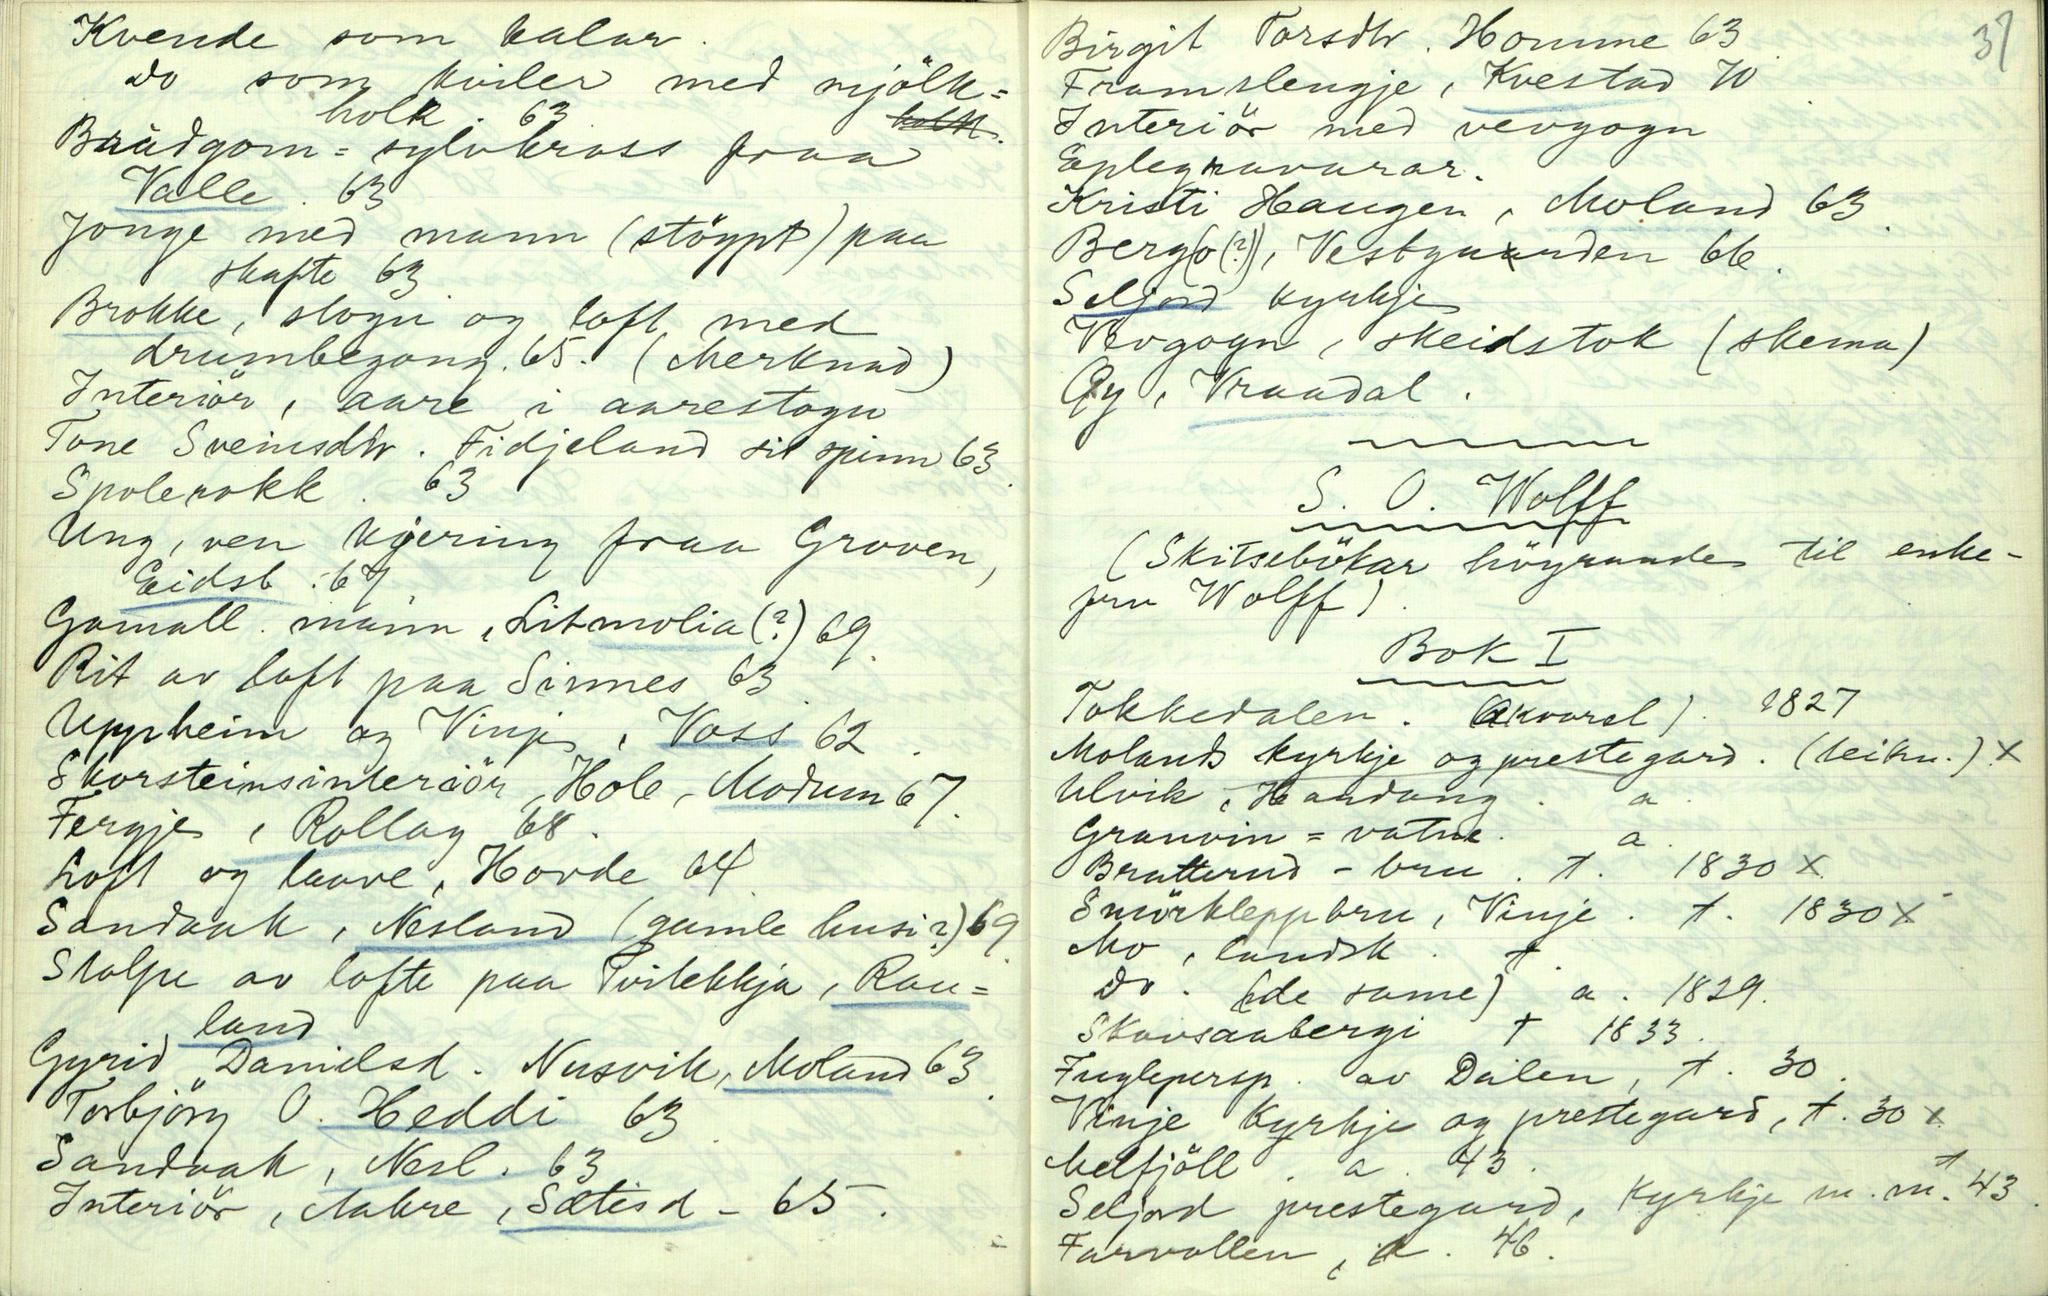 Kvende som balar.
Do som kviler med mjölk=
holk. 63
Brúdgom=sylvkross fraa
Valle. 63
Jonge med mann (stöypt) paa
skafte 63
Brokke, stogu og loft med
drumbegong. 65. (Merknad)
Interiör, aare i aarestogu
Tone Sveinsdtr. Fidjeland sit spinn 63.
Spolerokk. 63
Ung, ven kjering fraa Groven,
Eidsb. 67
Gamall mann, Litmolia (?) 69.
Rit av loft paa Sinnes 63
Uppheim og Vinje, Voss 62.
Skorsteinsinteriör, Hole, Modum 67.
Fergje, Rollag 68.
Loft og laave, Hovde 64.
Sandaak, Nesland (gamle husi?) 69.
Stolpe av lofte paa Tvitekkja, Rau=
land
Gyrid Danielsd. Nusvik, Moland 63.
Torbjörg O. Heddi 63.
Sandaak, Nesl. 63
Interiör, Aakre, Sætisd – 65.
37
Birgit Torsdtr. Homme 63
Framslengje, Kvestad W
Interiör med vevgogn
Eplegnavarar.
Kristi Haugen, Moland 63
Berg(o(?)), Vestgaarden 66.
Seljord kyrkje
Vevgogn, skeidstok (skema)
Øy, Vraadal.
S. O. Wolff
(Skitsebökar höyrande til enke-
fru Wolff).
Bok I
Tokkedalen. (Akvarel). 1827
Molands kyrkje og prestegard. (teikn.) x
Ulvik, Hardang. a.
Granvin=vatne. a.
Bratterud-bru. t. 1830 x
Smörkleppbru, Vinje. t. 1830 x
Mo, landsk. t.
Do. (de same) a. 1829.
Skavsaabergi t 1833.
Fuglepersp. av Dalen, t. 30.
Vinje kyrkje og prestegard, t. 30 x
Melfjöll. a. 43.
Seljord prestegard, kyrkje m. m. t 43.
Farvollen, a. 46.